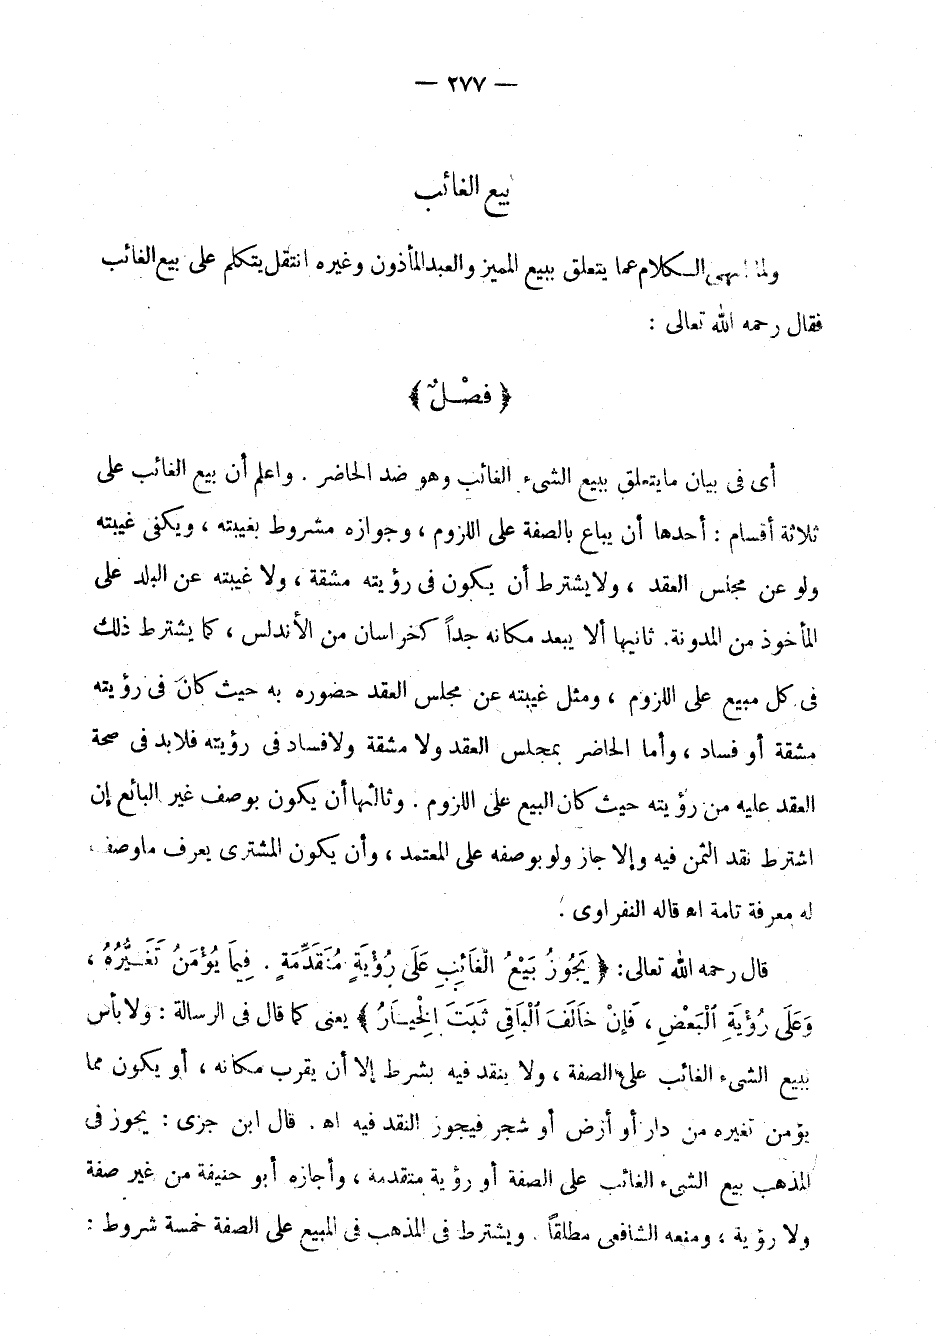 — ٢٧٧ —
بيع الغائب
ولما انتهى الكلام عما يتعلق ببيع المميز والعبد المأذون وغيره انتقل يتكلم على بيع الغائب
فقال رحمه الله تعالى :
﴿ فَصْلٌ ﴾
أى فى بيان ما يتعلق ببيع الشىء الغائب وهو ضد الحاضر . واعلم أن بيع الغائب على
ثلاثة أقسام : أحدها أن يباع بالصفة على اللزوم ، وجوازه مشروط بغيبته ، ويكفى غيبته
ولو عن مجلس العقد ، ولا يشترط أن يكون فى رؤيته مشقة ، ولا غيبته عن البلد على
المأخوذ من المدونة. ثانيها ألا يبعد مكانه جداً كخراسان من الأندلس ، كما يشترط ذلك
فى كل مبيع على اللزوم ، ومثل غيبته عن مجلس العقد حضوره به حيث كان فى رؤيته
مشقة أو فساد ، وأما الحاضر بمجلس العقد ولا مشقة ولا فساد فى رؤيته فلابد فى صحة
العقد عليه من رؤيته حيث كان البيع على اللزوم . وثالثها أن يكون بوصف غير البائع إن
اشترط نقد الثمن فيه وإلا جاز ولو بوصفه على المعتمد ، وأن يكون المشترى يعرف ما وصف
له معرفة تامة اه قاله النفراوى .
قال رحمه الله تعالى: ﴿ يَجُوزُ بَيْعُ الْغَائِبِ عَلَى رُؤْيَةٍ مُتَقَدِّمَةٍ . فِيمَا يُؤْمَنُ تَغَيُّرُهُ ،
وَعَلَى رُؤْيَةِ الْبَعْضِ ، فَإِنْ خَالَفَ الْبَاقِي ثَبَتَ الْخِيَارُ ﴾ يعنى كما قال فى الرسالة : ولا بأس
ببيع الشىء الغائب على الصفة ، ولا ينقد فيه بشرط إلا أن يقرب مكانه ، أو يكون مما
يؤمن تغيره من دار أو أرض أو شجر فيجوز النقد فيه اه . قال ابن جزى : يجوز فى
المذهب بيع الشىء الغائب على الصفة أو رؤية متقدمة ، وأجازه أبو حنيفة من غير صفة
ولا رؤية ، ومنعه الشافعى مطلقاً . ويشترط فى المذهب فى المبيع على الصفة خمسة شروط :